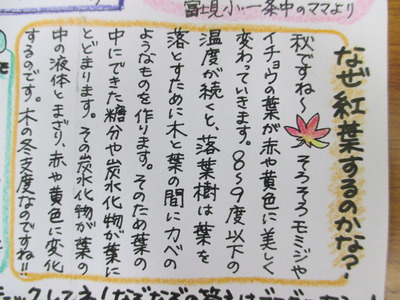 富士見小一条中のママより
なぜ紅葉するのかな?
秋ですね〜 そろそろモミジや
イチョウの葉が赤や黄色に美しく
変わっていきます。8〜9度以下の
温度が続くと、落葉樹は葉を
落とすために木と葉の間にカベの
ようなものを作ります。そのため葉の
中にできた糖分や炭水化物が葉に
とどまります。その炭水化物が葉の
中の液体とまざり、赤や黄色に変化
するのです。木の冬支度なのですね!!